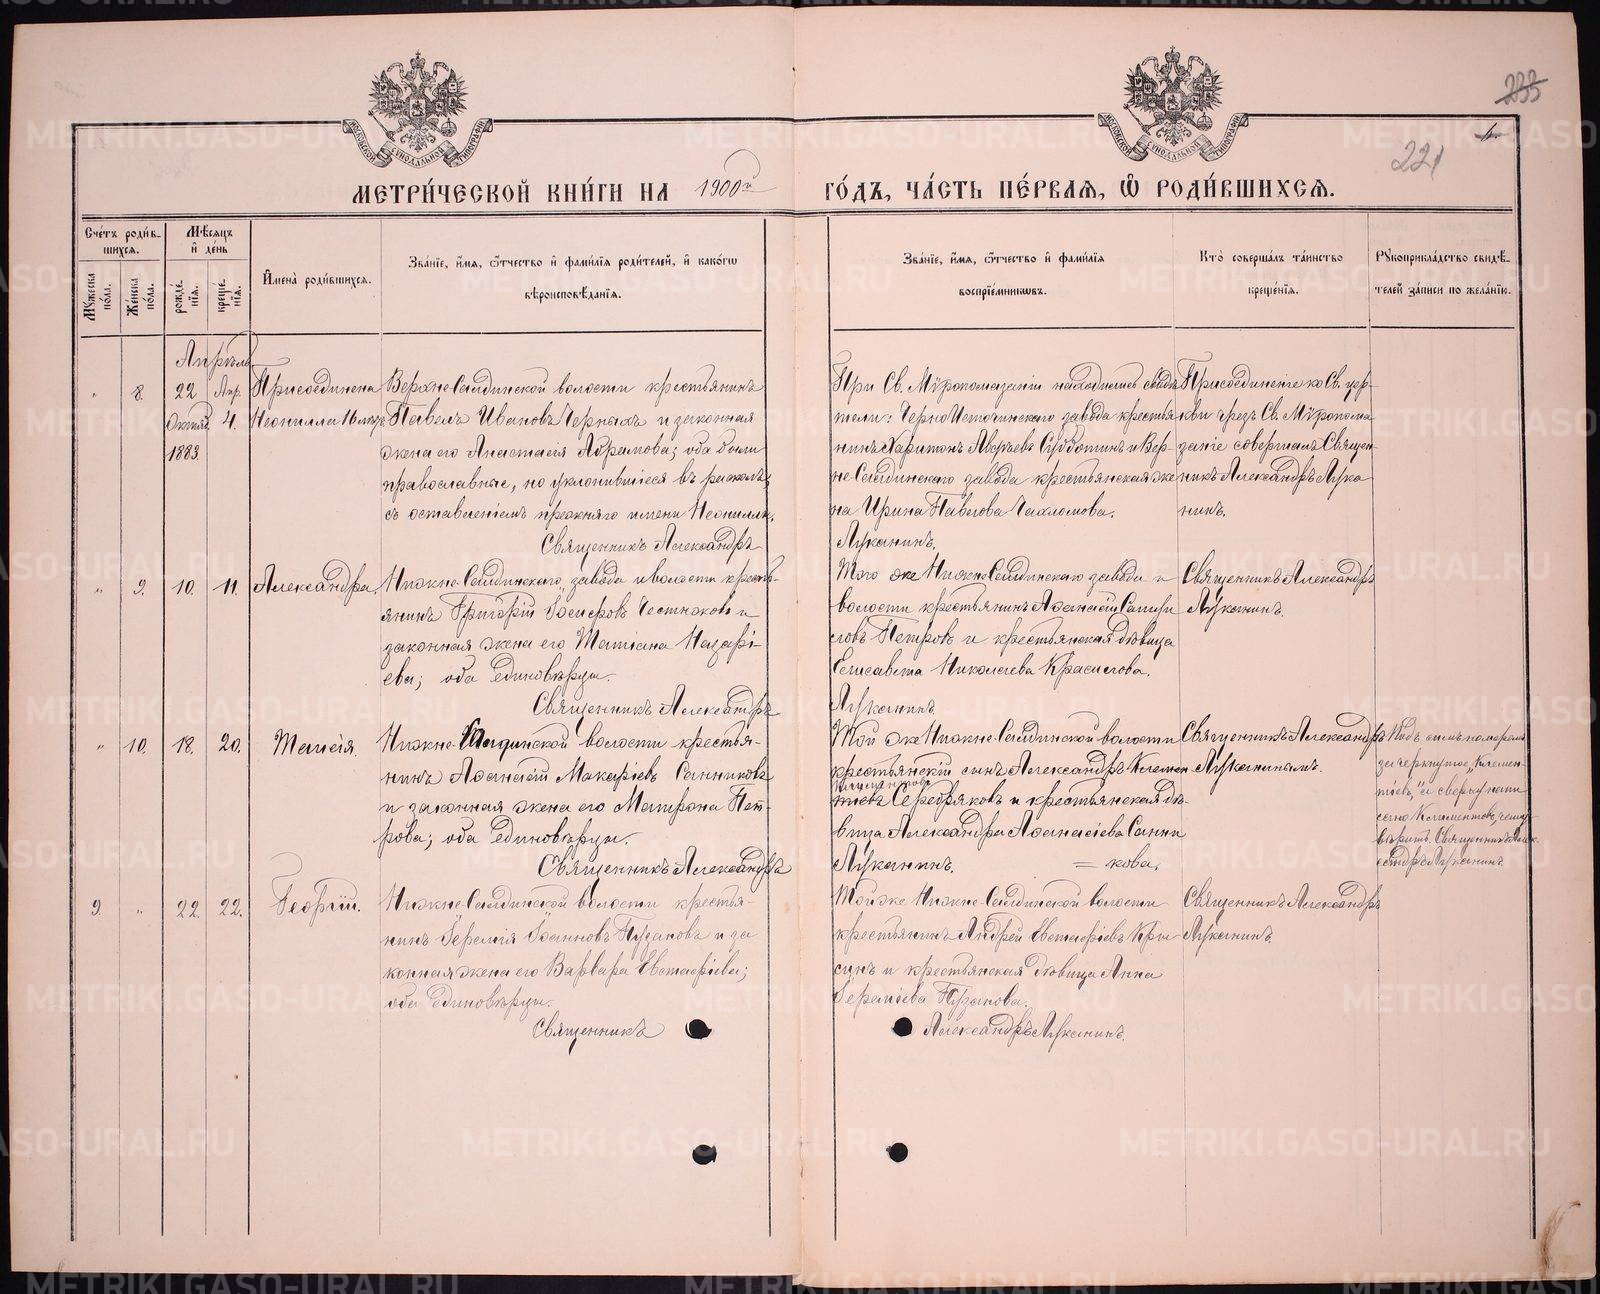 233
4
221
МОСКОВСКОЙ СѴНОДАЛЬНОЙ ТИПОГРАФІИ
МОСКОВСКОЙ СѴНОДАЛЬНОЙ ТИПОГРАФІИ
МЕТРИ́ЧЕСКОЙ КНИ́ГИ НА 1900й ГО́ДЪ, ЧА́СТЬ ПЕ́РВАЯ, Ѽ РОДИ́ВШИХСЯ.
Сче́тъ роди́вшихся.
Му́жеска по́ла.
Же́нска по́ла.
Мѣ́сяцъ и҆ де́нь
рожде́нїѧ.
креще́нїѧ.
И҆мена̀ роди́вшихся.
Зва́нїе, и҆́мѧ, ѻ҆́тчество и҆ фами́лїѧ роди́телей, и҆ како́гѡ вѣроисповѣ́данїѧ.
Зва́нїе, и҆́мѧ, ѻ҆́тчество и҆ фами́лїѧ воспрїе́мникѡвъ.
Кто̀ соверша́лъ та́инство креще́нїѧ.
Рꙋкоприкла́дство свидѣ́телей за́писи по жела́нїю.
Апрѣль
" 8. 22 Октяб. 1883. Апр. 4.
Присоединена
Неонилла 16 лѣтъ
Верхне-Салдинской волости крестьянинъ
Павелъ Ивановъ Черныхъ и законная
жена его Анастасія Абрамова; оба были
православные, но уклонившіеся въ расколъ,
съ оставленіемъ прежняго имени Неониллы.
Священникъ Александръ
При Св. Мѵропомазаніи находились свидѣ
тели: ЧерноИсточинскаго завода крестья
нинъ Харитонъ Аверьевъ Субботинъ и Вер-
хне-Салдинскаго завода крестьянская же
на Ирина Павлова
Луканинъ.
Присоединеніе ко Св. цер-
кви чрезъ Св. Мѵропома
заніе совершалъ Священ-
никъ Александръ Лука
нинъ.
" 9. 10. 11. Александра.
Нижне-Салдинскаго завода и волости кресть-
янинъ Григорій Іосифовъ Честноковъ и
законная жена его Татіана Назарі-
ева; оба единовѣрцы.
Священникъ Александръ
Того же Нижне-Салдинскаго завода и
волости крестьянинъ Аѳанасій Самуи
ловъ Петровъ и крестьянская дѣвица
Елисавета Николаева Красилова.
Луканинъ
Священникъ Александръ
Луканинъ.
" 10. 18. 20. Таисія.
Нижне-Салдинской волости крестья-
нинъ Аѳанасій Макаріевъ Санниковъ
и законная жена его Матрона Пет-
рова; оба единовѣрцы.
Священникъ Александръ
Той же Нижне-Салдинской волости
крестьянскій сынъ Александръ Климен
тіевъ Серебряковъ и крестьянская дѣ-
вица Александра Аѳанасіева Санни
Луканинъ. = кова.
Священникъ Александръ
Луканинымъ.
Подъ симъ номеромъ
зачеркнутое „Климен-
тіевъ," а сверху напи
сано Климентовъ,
вѣрить. Священникъ Алек
сандръ Луканинъ
9. " 22. 22. Георгій.
Нижне-Салдинской волости крестья-
нинъ Іеремія Іоанновъ Пузановъ и за
конная жена его Варвара Евстафіева;
оба единовѣрцы.
Священникъ
Той же Нижне-Салдинской волости
крестьянинъ Андрей Евстафіевъ Кри
синъ и крестьянская дѣвица Анна
Іереміева Пузанова.
Александръ Луканинъ.
Священникъ Александръ
Луканинъ.
METRIKI.GASO-URAL.RU